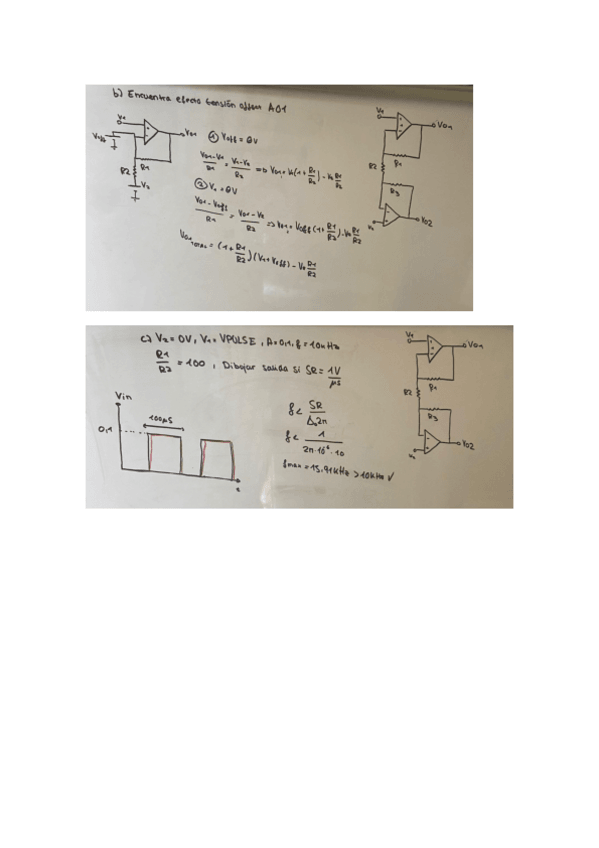 b) Encuentra efecto tensión offset AO1
V1
Voff
VO1
R1
R2
V2
① Voff = 0V
VO1-V1 / R1 = V1-V2 / R2 => VO1 = V1(1+R1/R2) - V2 R1/R2
② V1 = 0V
VO1-Voff / R1 =
=> VO1 = Voff(1+R1/R2) -
R1/R2
= (1+R1/R2)(V1+Voff) -
R1/R2
V1
VO1
R1
R2
R3
VO2
c) V2 = 0V, V1 = VPULSE, A=0,1, f = 10kHz
R1/R2 = 100, Dibujar salida si SR = 1V/μs
Vin
0,1
100μs
t
f < SR / A·2π
f < 1 / 2π·10⁻⁶·10
fmax = 15,91kHz > 10kHz ✓
V1
VO1
R1
R2
R3
VO2